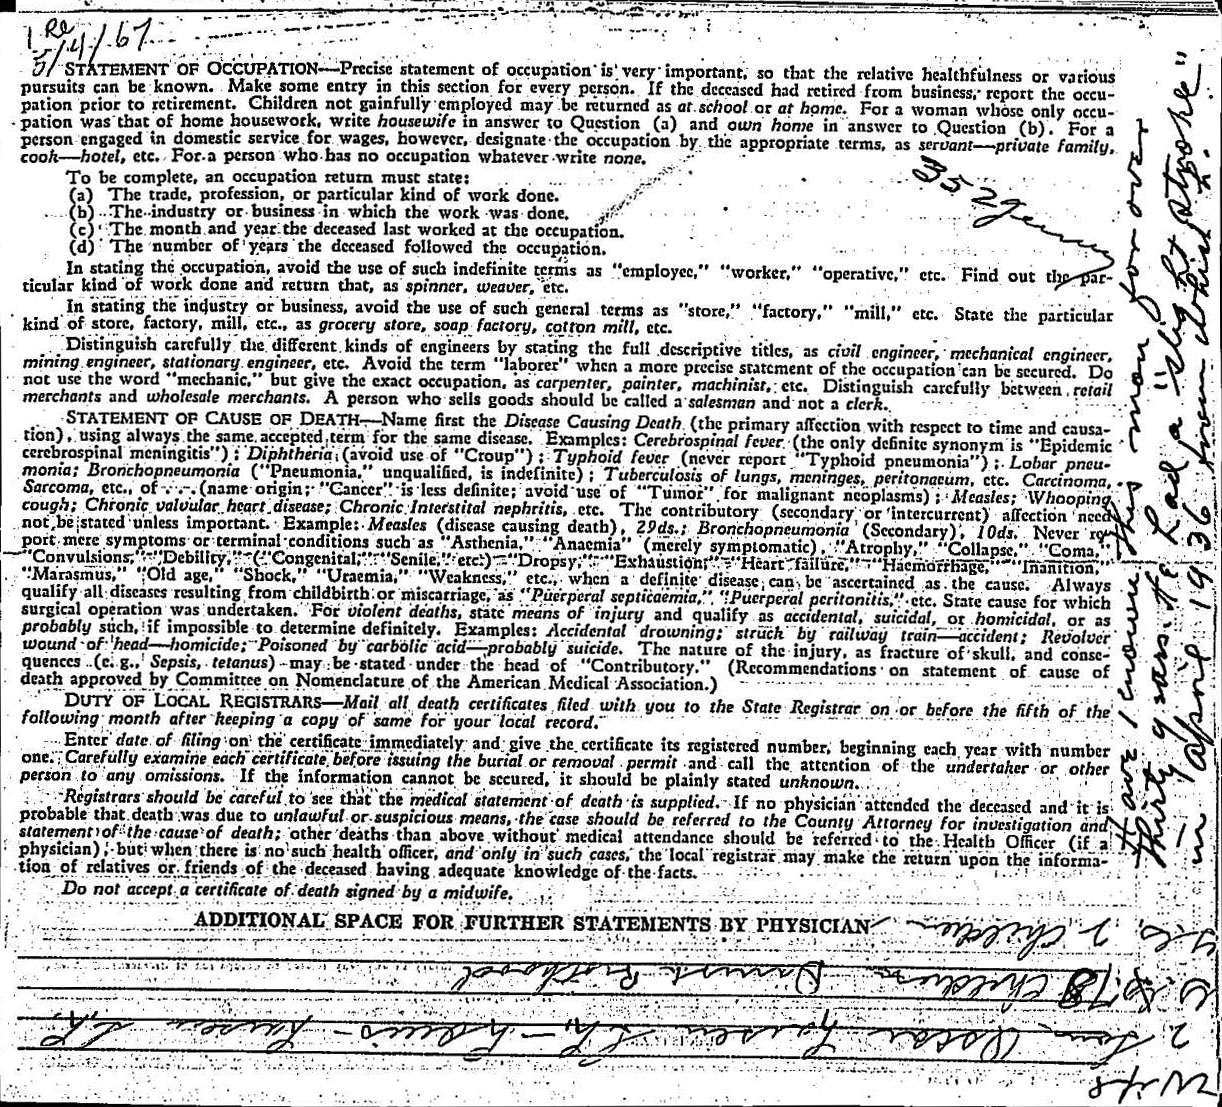 5/4/67
STATEMENT OF OCCUPATION—Precise statement of occupation is very important, so that the relative healthfulness or various
pursuits can be known. Make some entry in this section for every person. If the deceased had retired from business, report the occu-
pation prior to retirement. Children not gainfully employed may be returned as at school or at home. For a woman whose only occu-
pation was that of home housework, write housewife in answer to Question (a) and own home in answer to Question (b). For a
person engaged in domestic service for wages, however, designate the occupation by the appropriate terms, as servant—private family,
cook—hotel, etc. For a person who has no occupation whatever write none.
To be complete, an occupation return must state:
(a) The trade, profession, or particular kind of work done.
(b) The industry or business in which the work was done.
(c) The month and year the deceased last worked at the occupation.
(d) The number of years the deceased followed the occupation.
In stating the occupation, avoid the use of such indefinite terms as "employee," "worker," "operative," etc. Find out the par-
ticular kind of work done and return that, as spinner, weaver, etc.
In stating the industry or business, avoid the use of such general terms as "store," "factory," "mill," etc. State the particular
kind of store, factory, mill, etc., as grocery store, soap factory, cotton mill, etc.
Distinguish carefully the different kinds of engineers by stating the full descriptive titles, as civil engineer, mechanical engineer,
mining engineer, stationary engineer, etc. Avoid the term "laborer" when a more precise statement of the occupation can be secured. Do
not use the word "mechanic," but give the exact occupation, as carpenter, painter, machinist, etc. Distinguish carefully between retail
merchants and wholesale merchants. A person who sells goods should be called a salesman and not a clerk.
STATEMENT OF CAUSE OF DEATH—Name first the Disease Causing Death (the primary affection with respect to time and causa-
tion), using always the same accepted term for the same disease. Examples: Cerebrospinal fever (the only definite synonym is "Epidemic
cerebrospinal meningitis"); Diphtheria (avoid use of "Croup"); Typhoid fever (never report "Typhoid pneumonia"); Lobar pneu-
monia; Bronchopneumonia ("Pneumonia," unqualified, is indefinite); Tuberculosis of lungs, meninges, peritonaeum, etc. Carcinoma,
Sarcoma, etc., of . . . (name origin; "Cancer" is less definite; avoid use of "Tumor" for malignant neoplasms); Measles; Whooping
cough; Chronic valvular heart disease; Chronic Interstital nephritis, etc. The contributory (secondary or intercurrent) affection need
not be stated unless important. Example: Measles (disease causing death), 29ds.; Bronchopneumonia (Secondary), 10ds. Never re-
port mere symptoms or terminal conditions such as "Asthenia," "Anaemia" (merely symptomatic), "Atrophy," "Collapse," "Coma,"
"Convulsions," "Debility," ("Congenital," "Senile," etc.) "Dropsy," "Exhaustion," "Heart failure," "Haemorrhage," "Inanition,"
"Marasmus," "Old age," "Shock," "Uraemia," "Weakness," etc., when a definite disease can be ascertained as the cause. Always
qualify all diseases resulting from childbirth or miscarriage, as "Puerperal septicaemia," "Puerperal peritonitis," etc. State cause for which
surgical operation was undertaken. For violent deaths, state means of injury and qualify as accidental, suicidal, or homicidal, or as
probably such, if impossible to determine definitely. Examples: Accidental drowning; struck by railway train—accident; Revolver
wound of head—homicide; Poisoned by carbolic acid—probably suicide. The nature of the injury, as fracture of skull, and conse-
quences (e. g., Sepsis, tetanus) may be stated under the head of "Contributory." (Recommendations on statement of cause of
death approved by Committee on Nomenclature of the American Medical Association.)
DUTY OF LOCAL REGISTRARS—Mail all death certificates filed with you to the State Registrar on or before the fifth of the
following month after keeping a copy of same for your local record.
Enter date of filing on the certificate immediately and give the certificate its registered number, beginning each year with number
one. Carefully examine each certificate before issuing the burial or removal permit and call the attention of the undertaker or other
person to any omissions. If the information cannot be secured, it should be plainly stated unknown.
Registrars should be careful to see that the medical statement of death is supplied. If no physician attended the deceased and it is
probable that death was due to unlawful or suspicious means, the case should be referred to the County Attorney for investigation and
statement of the cause of death; other deaths than above without medical attendance should be referred to the Health Officer (if a
physician), but when there is no such health officer, and only in such cases, the local registrar may make the return upon the informa-
tion of relatives or friends of the deceased having adequate knowledge of the facts.
Do not accept a certificate of death signed by a midwife.
ADDITIONAL SPACE FOR FURTHER STATEMENTS BY PHYSICIAN
352
Have known this man for over
thirty years. He had a "slight stroke"
in April 1936 from which h.
Wife
2 Son Oscar Larsen S.L. – Louis Larsen S.L.
78 children Danish Brothood
2 Children